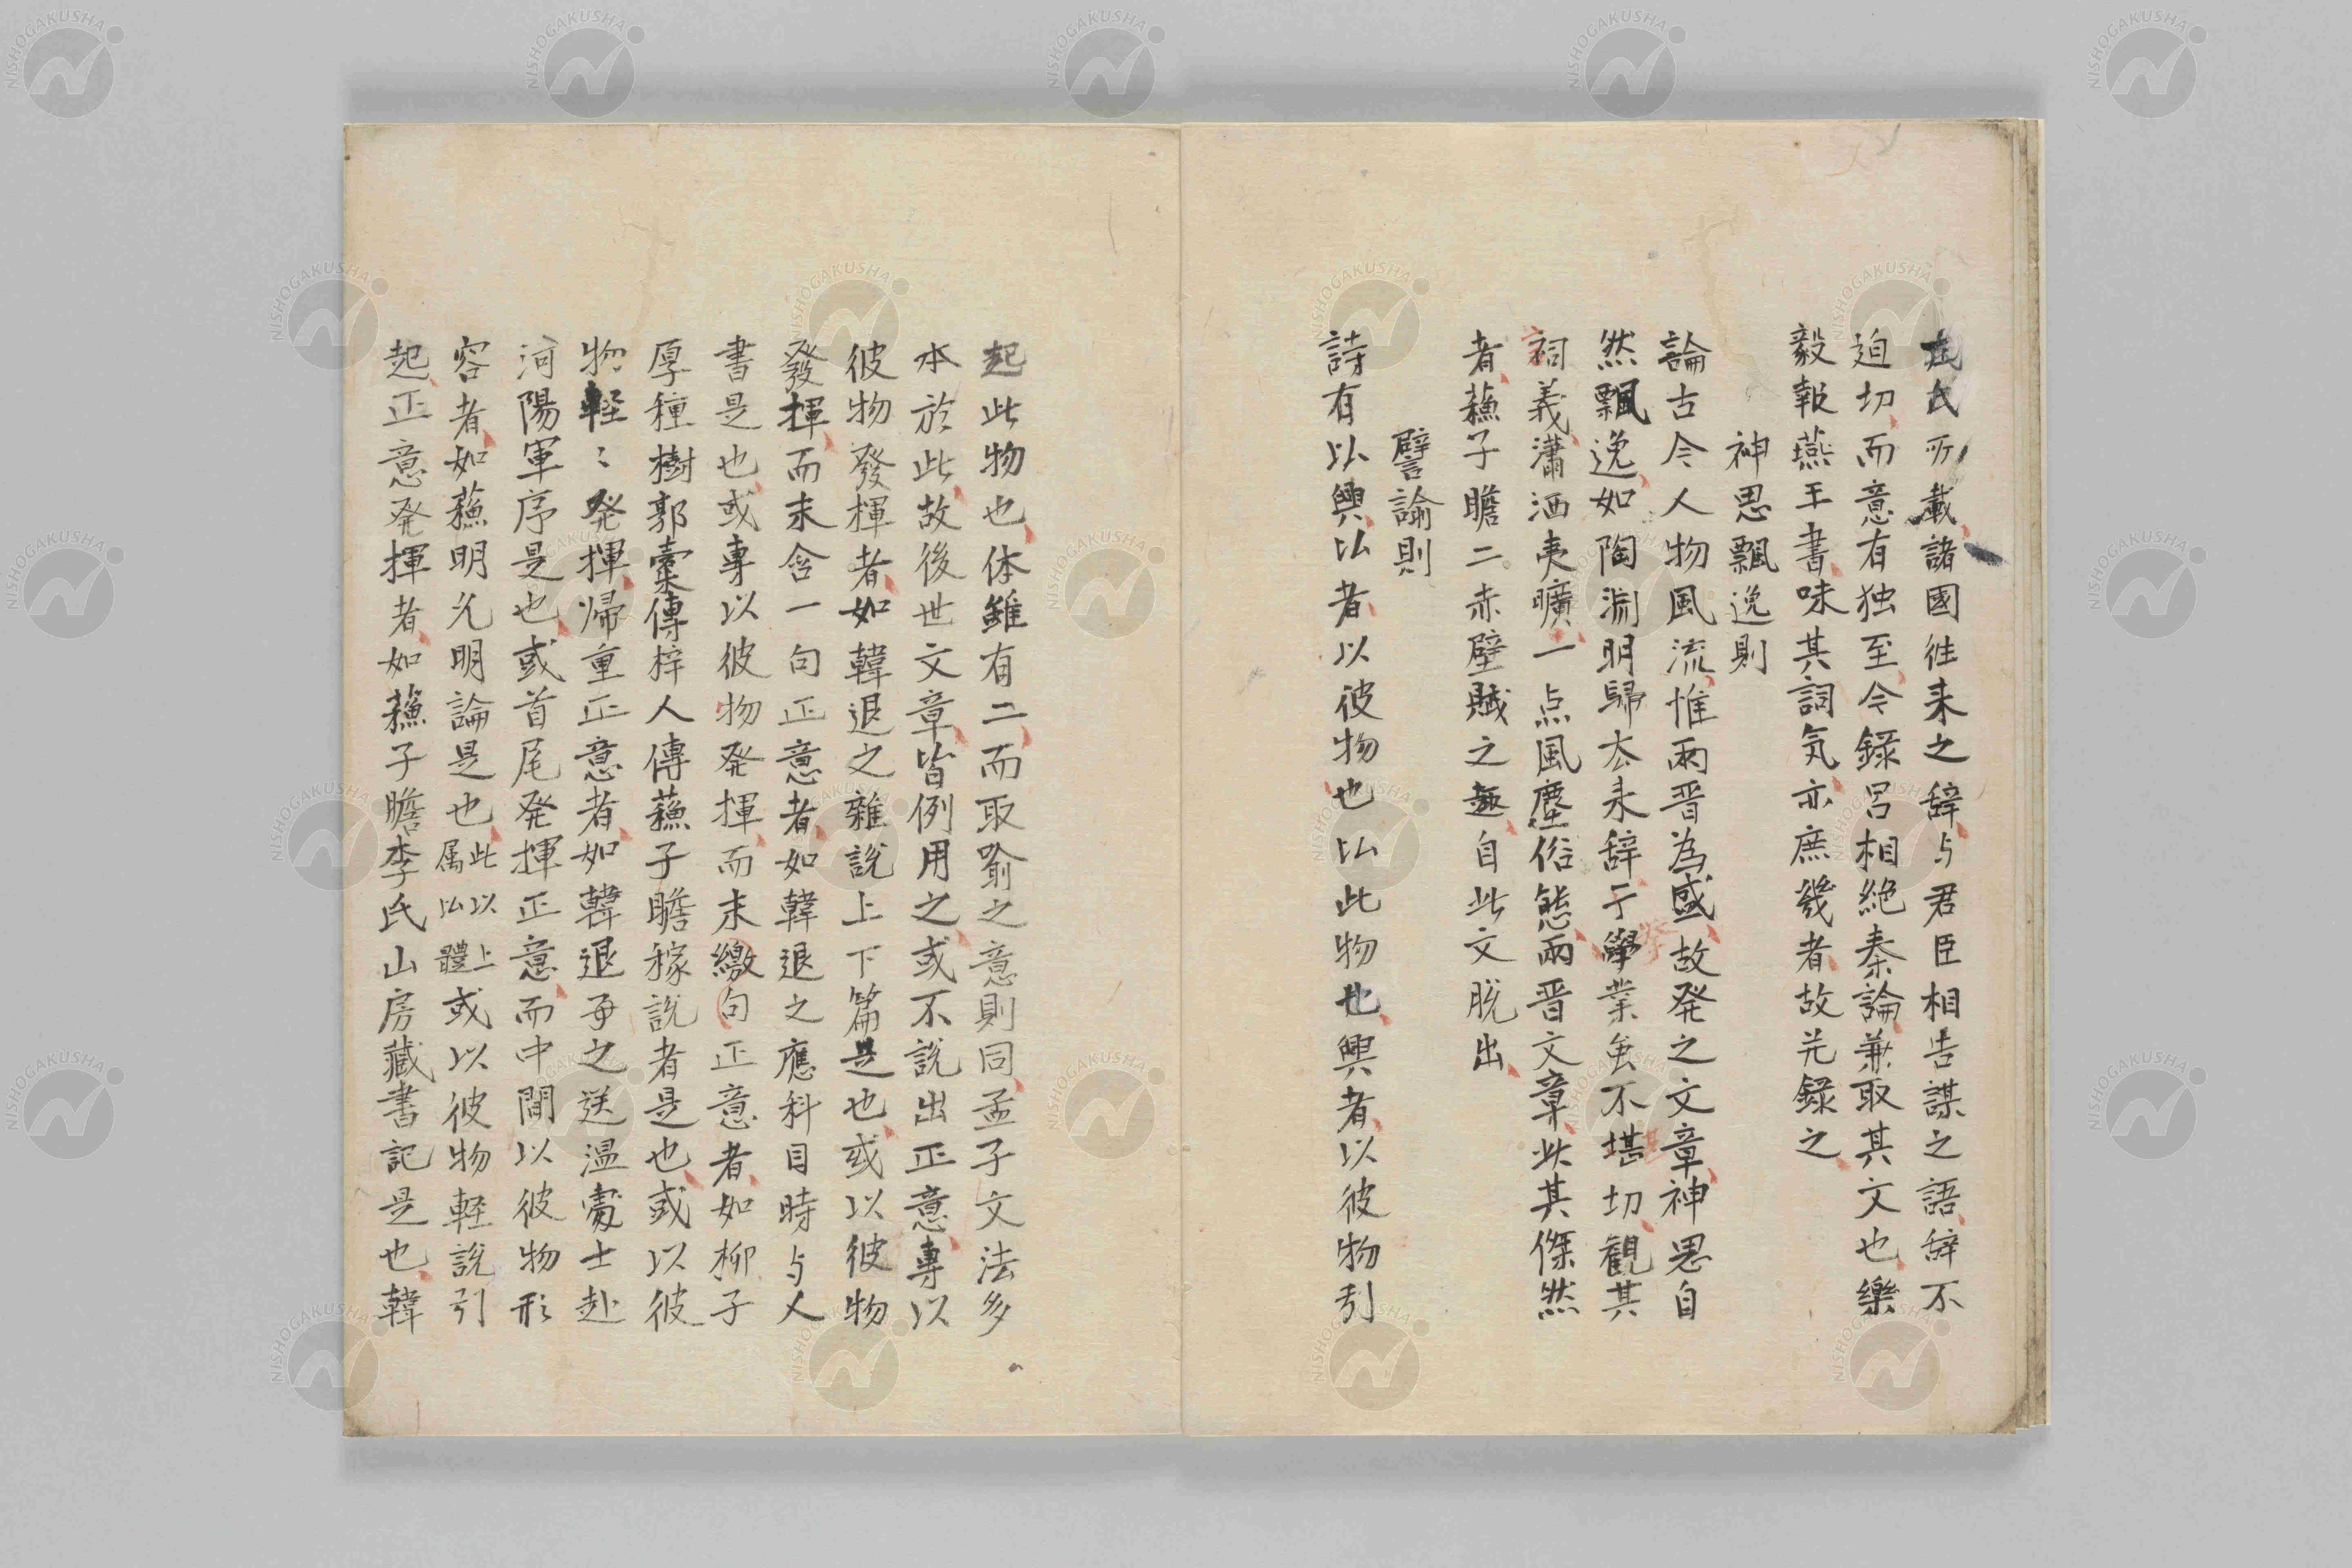 左氏所載諸國往来之辞与君臣相告謀之語辞不
迫切而意有独至今録呂相絶秦論兼取其文也樂
毅報燕王書味其詞気亦庶幾者故并録之
神思飄逸則
論古今人物風流惟兩晋為盛故発之文章神思自
然飄逸如陶淵明歸去来辞于學業虽不堪切観其
詞義瀟洒夷曠一点風塵俗態兩晋文章此其傑然
者蘓子瞻二赤壁賦之趣自此文脱出
譬諭則
詩有以興比者以彼物也比此物也興者以彼物引
起此物也体雖有二而取喻之意則同孟子文法多
本於此故後世文章皆例用之或不說出正意專以
彼物發揮者如韓退之雜說上下篇是也或以彼物
發揮而末含一句正意者如韓退之應科目時与人
書是也或專以彼物発揮而末繳句正意者如柳子
厚種樹郭槖傳梓人傳蘓子瞻稼說者是也或以彼
物軽〻発揮帰重正意者如韓退子之送温處士赴
河陽軍序是也或首尾発揮正意而中間以彼物形
容者如蘓明允明論是也此以上属比體或以彼物軽說引
起正意発揮者如蘓子瞻李氏山房藏書記是也韓
NISHOGAKUSHA